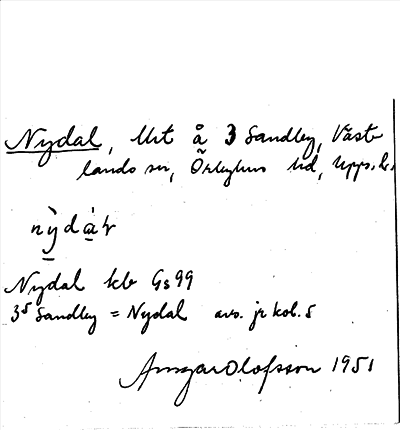 Nydal, Utt å 3 Sandby, Väst-
lands sn, Örbyhus hd, Upps. l.
nỳdàr
Nydal kb Gs 99
3⁵ Sandby = Nydal avs. jr kol. 5
Ansgar Olofsson 1951